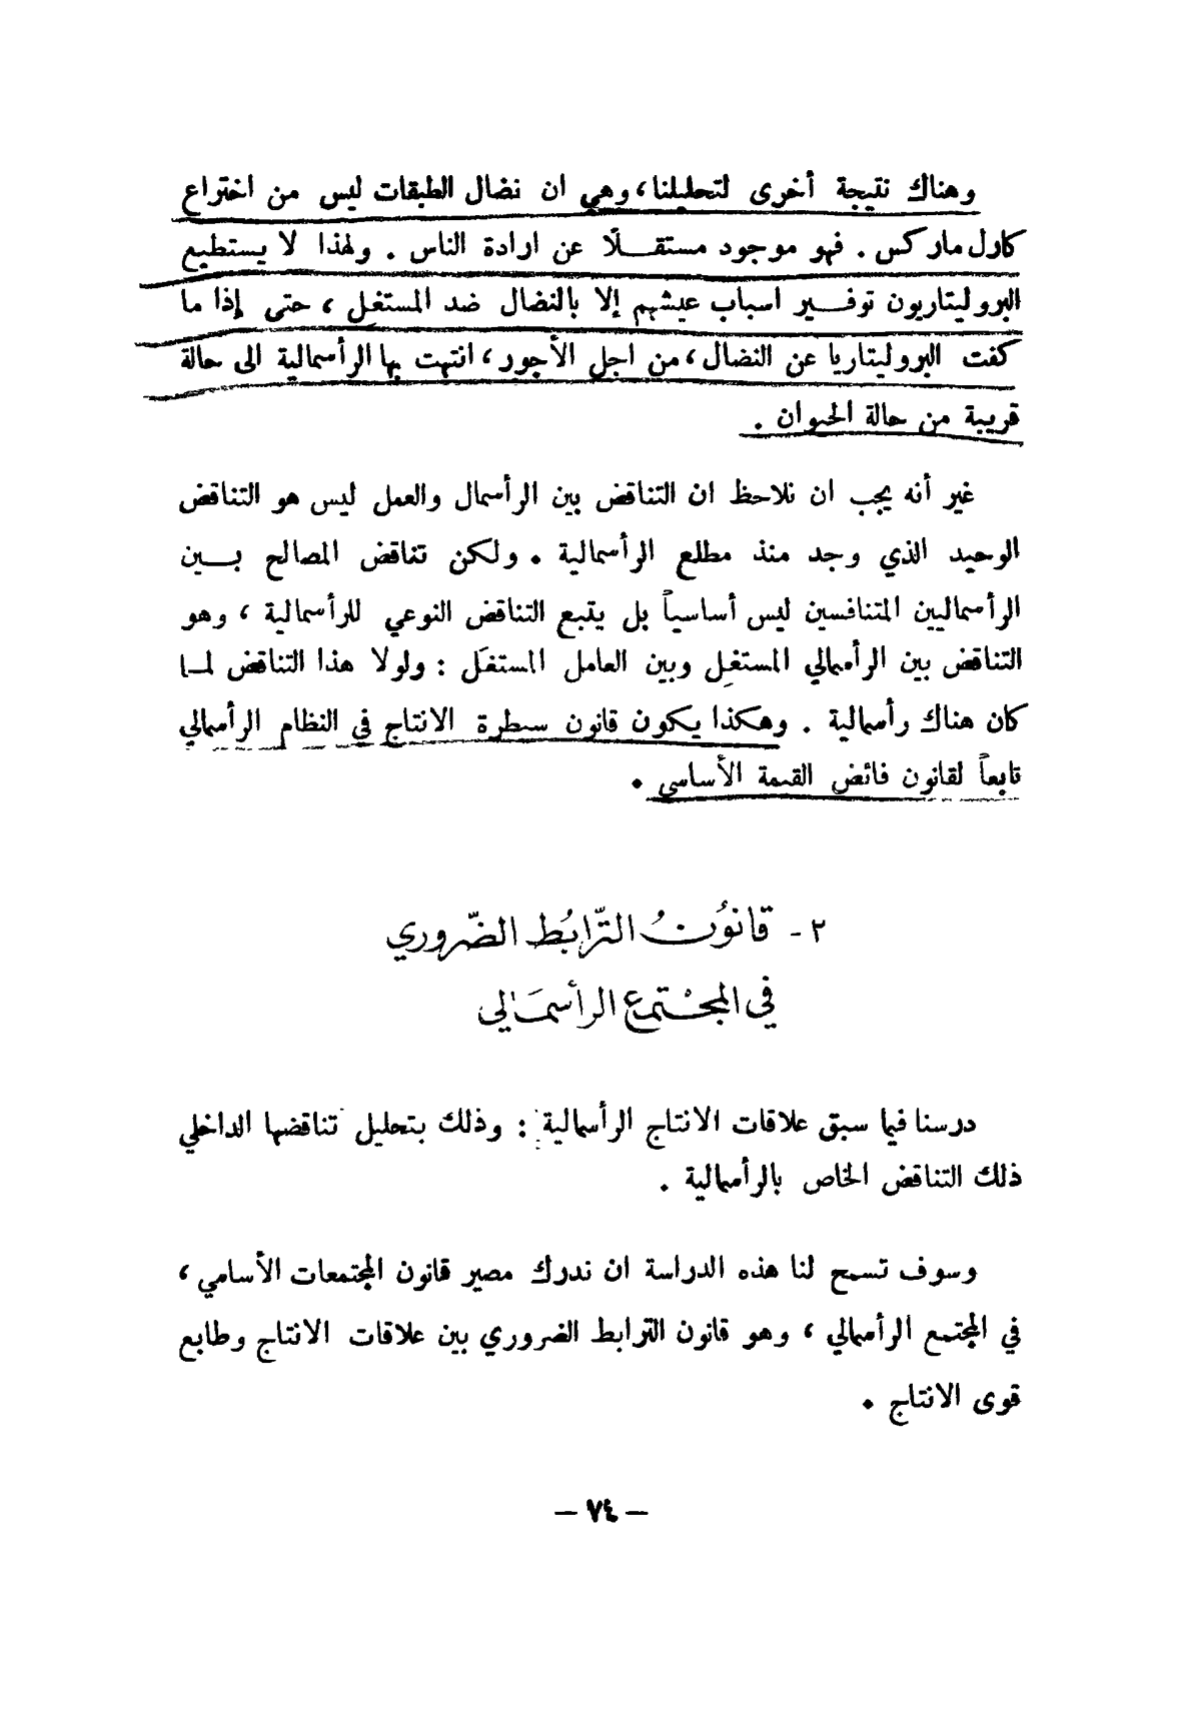 وهناك نتيجة أخرى لتحليلنا، وهي ان نضال الطبقات ليس من اختراع
كارل ماركس . فهو موجود مستقلًا عن ارادة الناس . ولهذا لا يستطيع
البروليتاريون توفير اسباب عيشهم إلا بالنضال ضد المستغل ، حتى إذا ما
كفت البروليتاريا عن النضال، من اجل الأجور، انتهت بها الرأسمالية الى حالة
قريبة من حالة الحيوان .
غير أنه يجب ان نلاحظ ان التناقض بين الرأسمال والعمل ليس هو التناقض
الوحيد الذي وجد منذ مطلع الرأسمالية . ولكن تناقض المصالح بين
الرأسماليين المتنافسين ليس أساسياً بل يتبع التناقض النوعي للرأسمالية ، وهو
التناقض بين الرأسمالي المستغِل وبين العامل المستغَل : ولولا هذا التناقض لما
كان هناك رأسمالية . وهكذا يكون قانون سيطرة الانتاج في النظام الرأسمالي
تابعاً لقانون فائض القيمة الأساسي .
٢ - قانوُنُ التّرابُط الضّروري
في المجْتمع الرأسمَالي
درسنا فيما سبق علاقات الانتاج الرأسمالية : وذلك بتحليل تناقضها الداخلي
ذلك التناقض الخاص بالرأسمالية .
وسوف تسمح لنا هذه الدراسة ان ندرك مصير قانون المجتمعات الأساسي ،
في المجتمع الرأسمالي ، وهو قانون الترابط الضروري بين علاقات الانتاج وطابع
قوى الانتاج .
— ٧٤ —